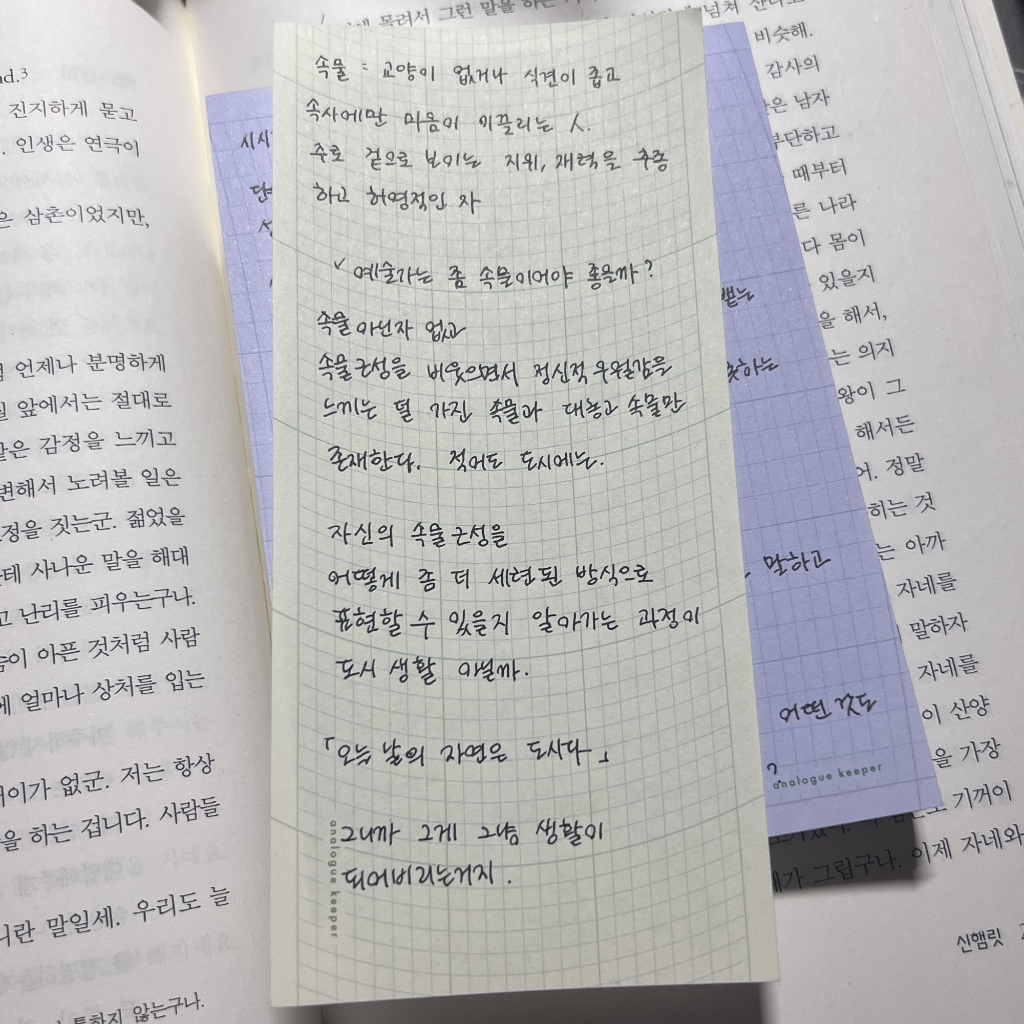 속물 : 교양이 없거나 식견이 좁고
속사에만 마음이 이끌리는 人.
주로 겉으로 보이는 지위, 재력을 추종
하고 허영적인 자
✓ 예술가는 좀 속물이어야 좋을까?
속물 아닌자 없고
속물근성을 비웃으면서 정신적 우월감을
느끼는 덜 가진 속물과 대놓고 속물만
존재한다. 적어도 도시에는.
자신의 속물근성을
어떻게 좀 더 세련된 방식으로
표현할 수 있을지 알아가는 과정이
도시 생활 아닐까.
「오늘날의 자연은 도시다」
그니까 그게 그냥 생활이
되어버리는거지.
analogue keeper
시시
말하고
어떤 것도
?
analogue keeper
nd.³
진지하게 묻고
. 인생은 연극이
은 삼촌이었지만,
언제나 분명하게
앞에서는 절대로
같은 감정을 느끼고
변해서 노려볼 일은
표정을 짓는군. 젊었을
사나운 말을 해대
고 난리를 피우는구나.
이 아픈 것처럼 사람
에 얼마나 상처를 입는
이가 없군. 저는 항상
을 하는 겁니다. 사람들
니란 말일세. 우리도 늘
통하지 않는구나.
몰려서 그런 말을 하는
비슷해.
감사의
남자
부단하고
때부터
른 나라
다 몸이
있을지
을 해서,
는 의지
왕이 그
해서든
어. 정말
히는 것
는 아까
자네를
말하자
자네를
이 산양
을 가장
기꺼이
그립구나. 이제 자네와
신햄릿